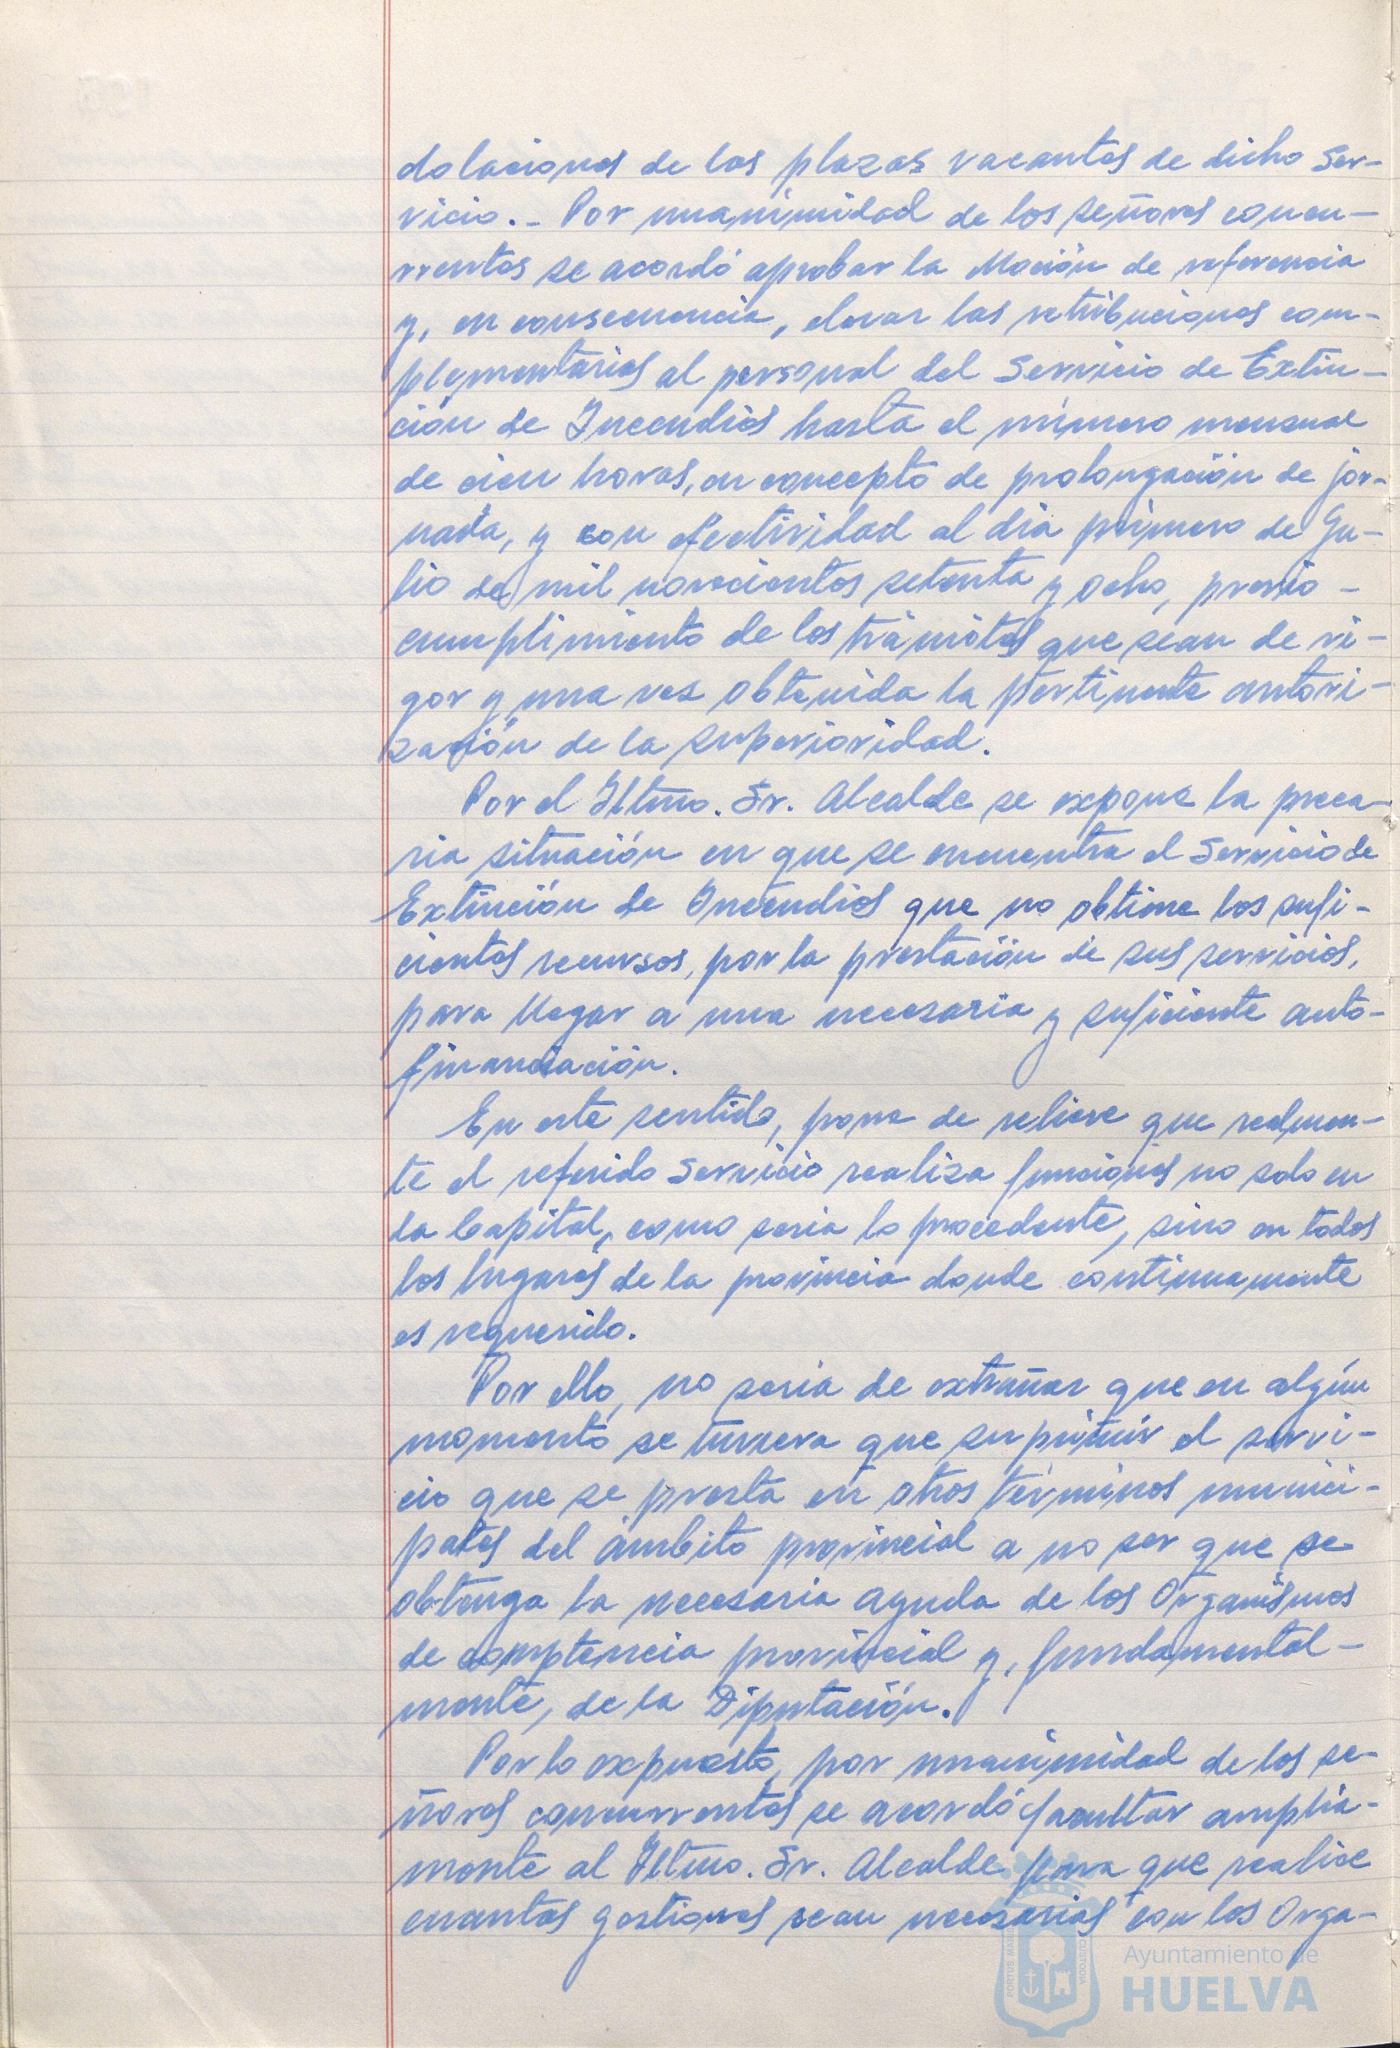 dotaciones de las plazas vacantes de dicho Ser-
vicio.- Por unanimidad de los señores concu-
rrentes se acordó aprobar la Moción de referencia
y, en consecuencia, elevar las retribuciones com-
plementarias al personal del Servicio de Extin-
ción de Incendios hasta el número mensual
de cien horas, en concepto de prolongación de jor-
nada, y con efectividad al dia primero de Ju-
lio de mil novecientos setenta y ocho, previo -
cumplimiento de los trámites que sean de vi-
gor y una vez obtenida la pertinente autori-
zación de la superioridad.
Por el Iltmo. Sr. Alcalde se expone la preca-
ria situación en que se encuentra el Servicio de
Extinción de Incendios que no obtiene los sufi-
cientes recursos, por la prestación de sus servicios,
para llegar a una necesaria y suficiente auto-
financiación.
En este sentido, pone de relieve que realmen-
te el referido Servicio realiza funciones no solo en
la Capital, como seria lo procedente, sino en todos
los lugares de la provincia donde continuamente
es requerido.
Por ello, no seria de extrañar que en algún
momento se tuviera que suprimir el servi-
cio que se presta en otros términos munici-
pales del ámbito provincial a no ser que se
obtenga la necesaria ayuda de los Organismos
de comptencia provincial y, fundamental-
mente, de la Diputación.
Por lo expuesto, por unanimidad de los se-
ñores concurrentes se acordó facultar amplia-
mente al Iltmo. Sr. Alcalde para que realice
cuantas gestiones sean necesarias con los Orga-
PORTUS MARIS
CUSTODIA
Ayuntamiento de
HUELVA